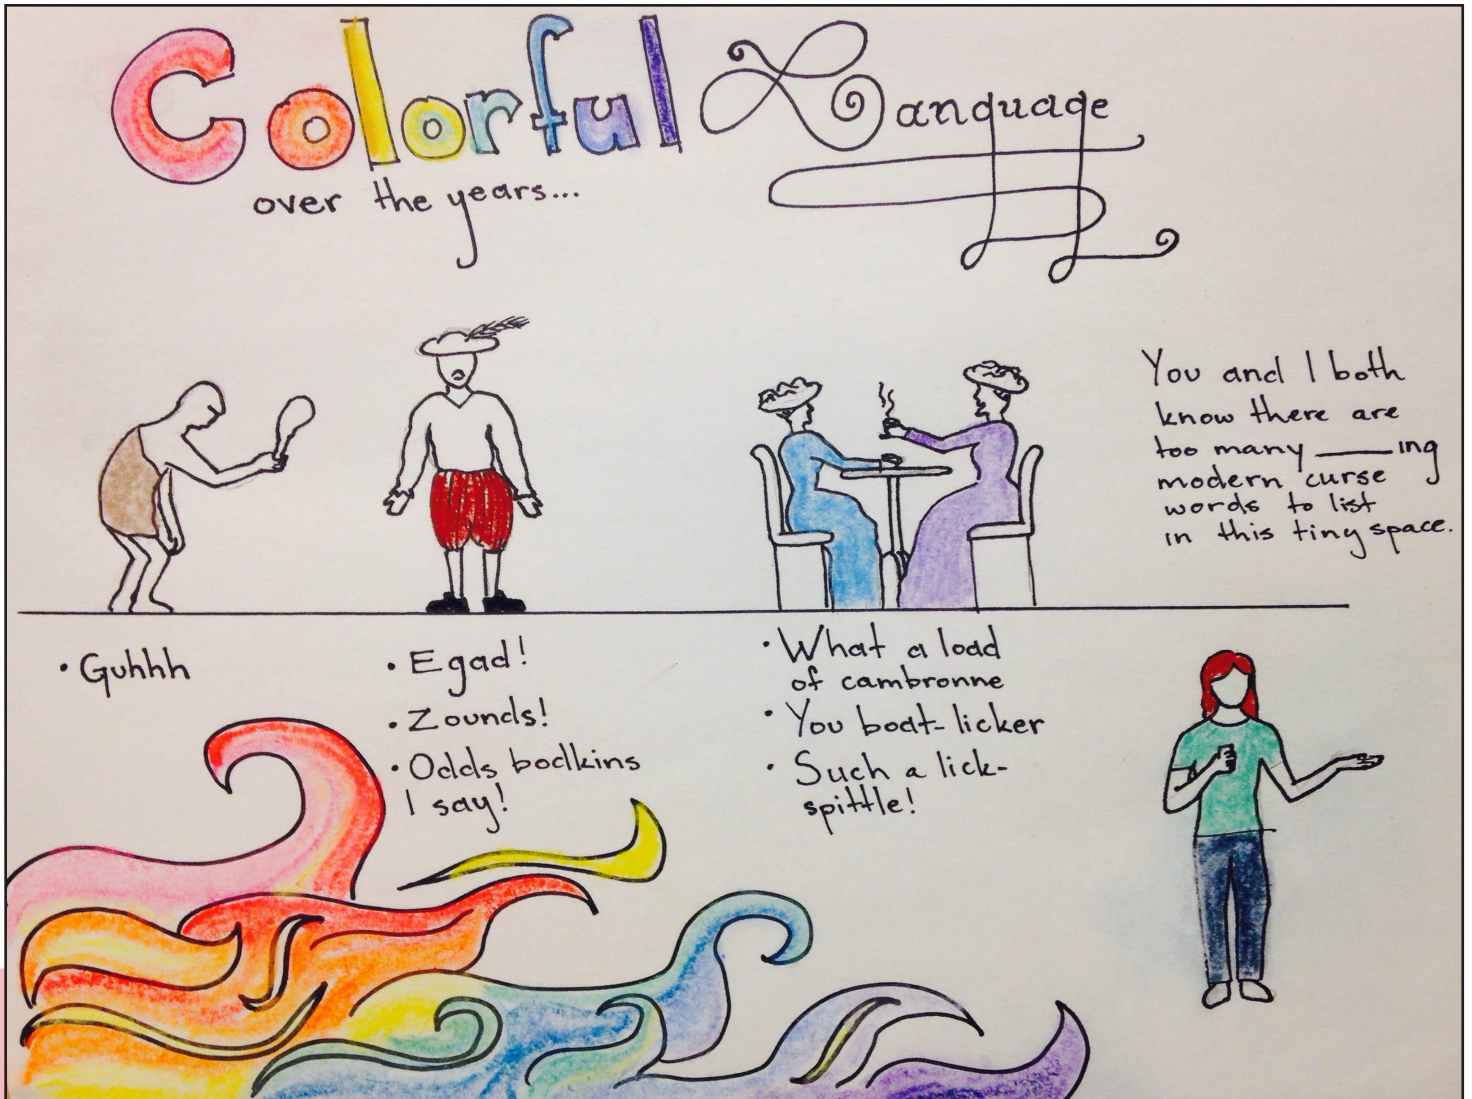 Colorful Language
over the years...
You and I both
know there are
too many ____ing
modern curse
words to list
in this tiny space.
• Guhhh
• Egad!
• Zounds!
• Odds bodkins
I say!
• What a load
of cambronne
• You boat-licker
• Such a lick-
spittle!